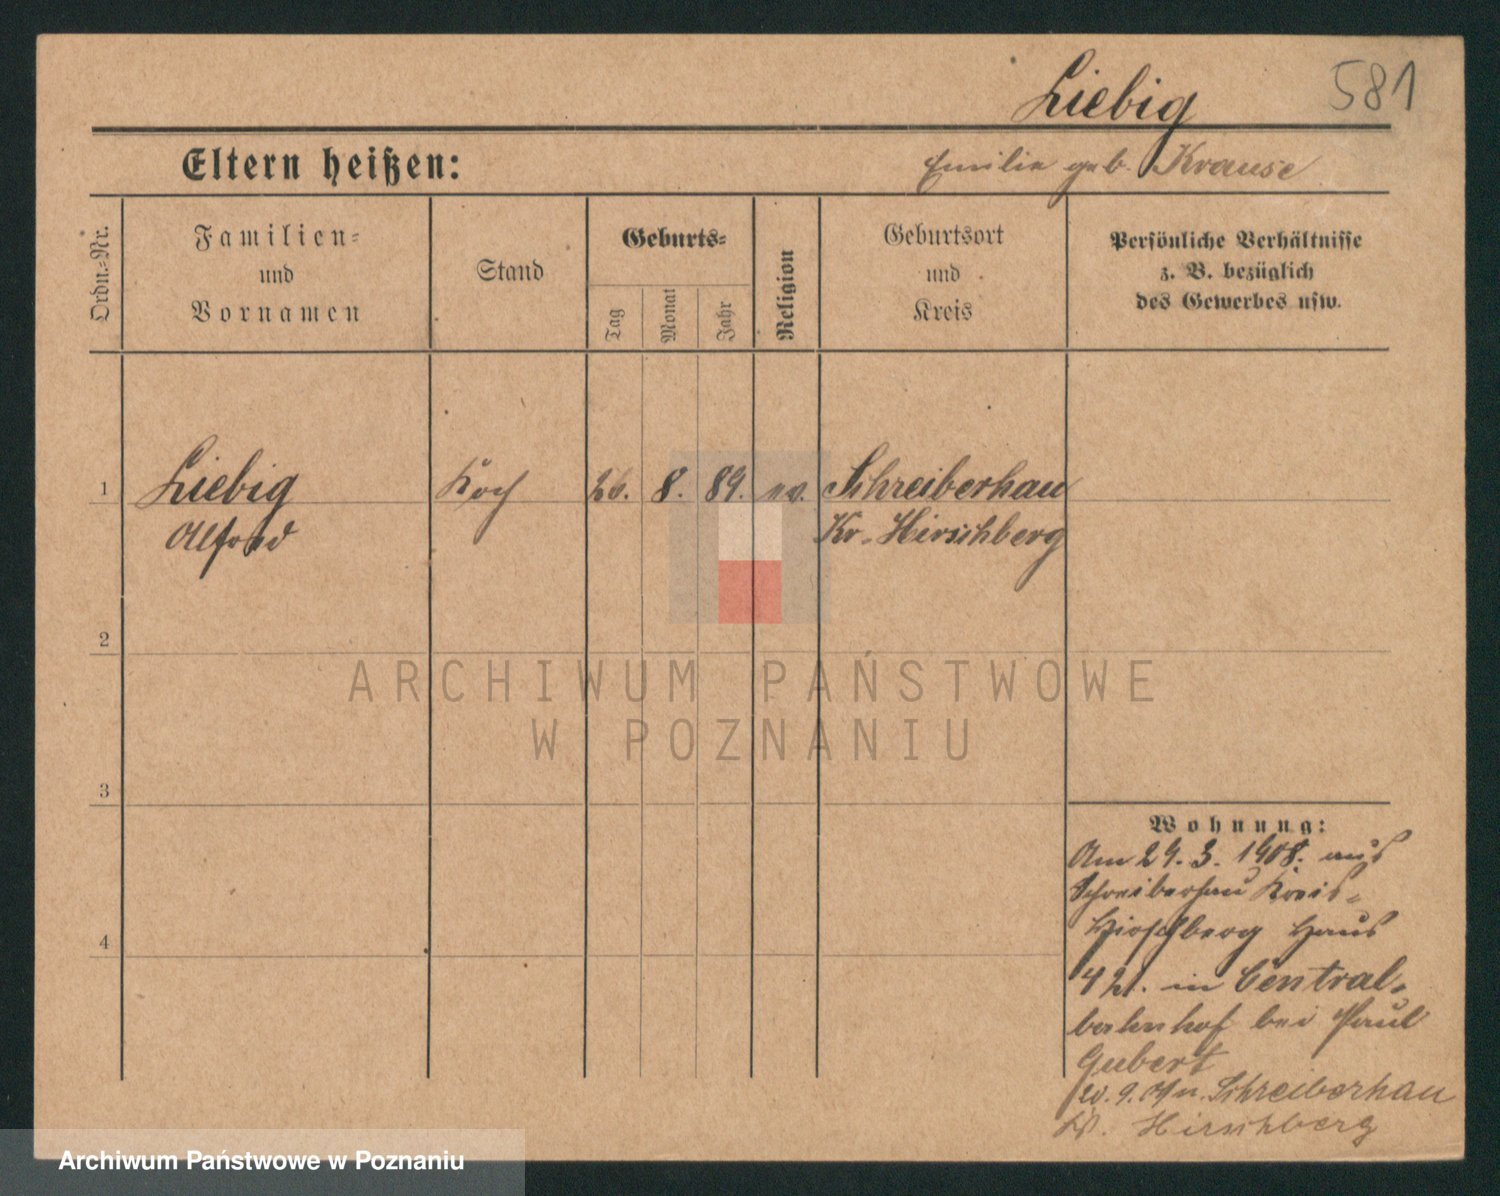 Liebig
581
Eltern heißen:
Emilie geb. Krause
Ordn.-Nr.
Familien-
und
Vornamen
Stand
Geburts-
Tag
Monat
Jahr
Religion
Geburtsort
und
Kreis
Persönliche Verhältnisse
z. B. bezüglich
des Gewerbes usw.
1 Liebig Koch 26. 8. 89. ev. Schreiberhau
Alfred Kr. Hirschberg
2
ARCHIWUM PAŃSTWOWE
W POZNANIU
3
Wohnung:
Am 29. 3. 1908. aus
Schreiberhau Kreis-
Hirschberg Haus
in Central-
bahnhof bei Paul
Gubert
4
9. Schreiberhau
Hirschberg
Archiwum Państwowe w Poznaniu